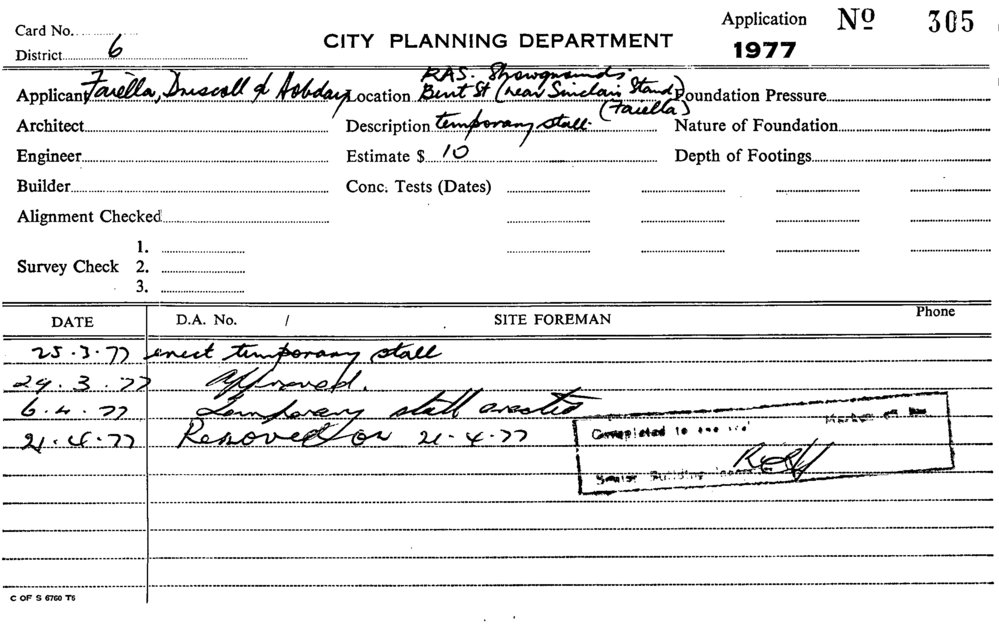 Card No.
District 6
CITY PLANNING DEPARTMENT
Application No 305
1977
Applicant Faiella, Driscoll & Hobday
Location RAS. Showgrounds.
Bent St (near Sinclair Stand)
(Faiella)
Foundation Pressure
Architect
Description temporary stall.
Nature of Foundation
Engineer
Estimate $ 10
Depth of Footings
Builder
Conc. Tests (Dates)
Alignment Checked
Survey Check 1.
2.
3.
DATE D.A. No. / SITE FOREMAN Phone
25.3.77 erect temporary stall
29.3.77 Approved.
6.4.77 Temporary stall erected
21.4.77 Removed on 21.4.77
Completed to
Senior Building
C OF S 6760 T5